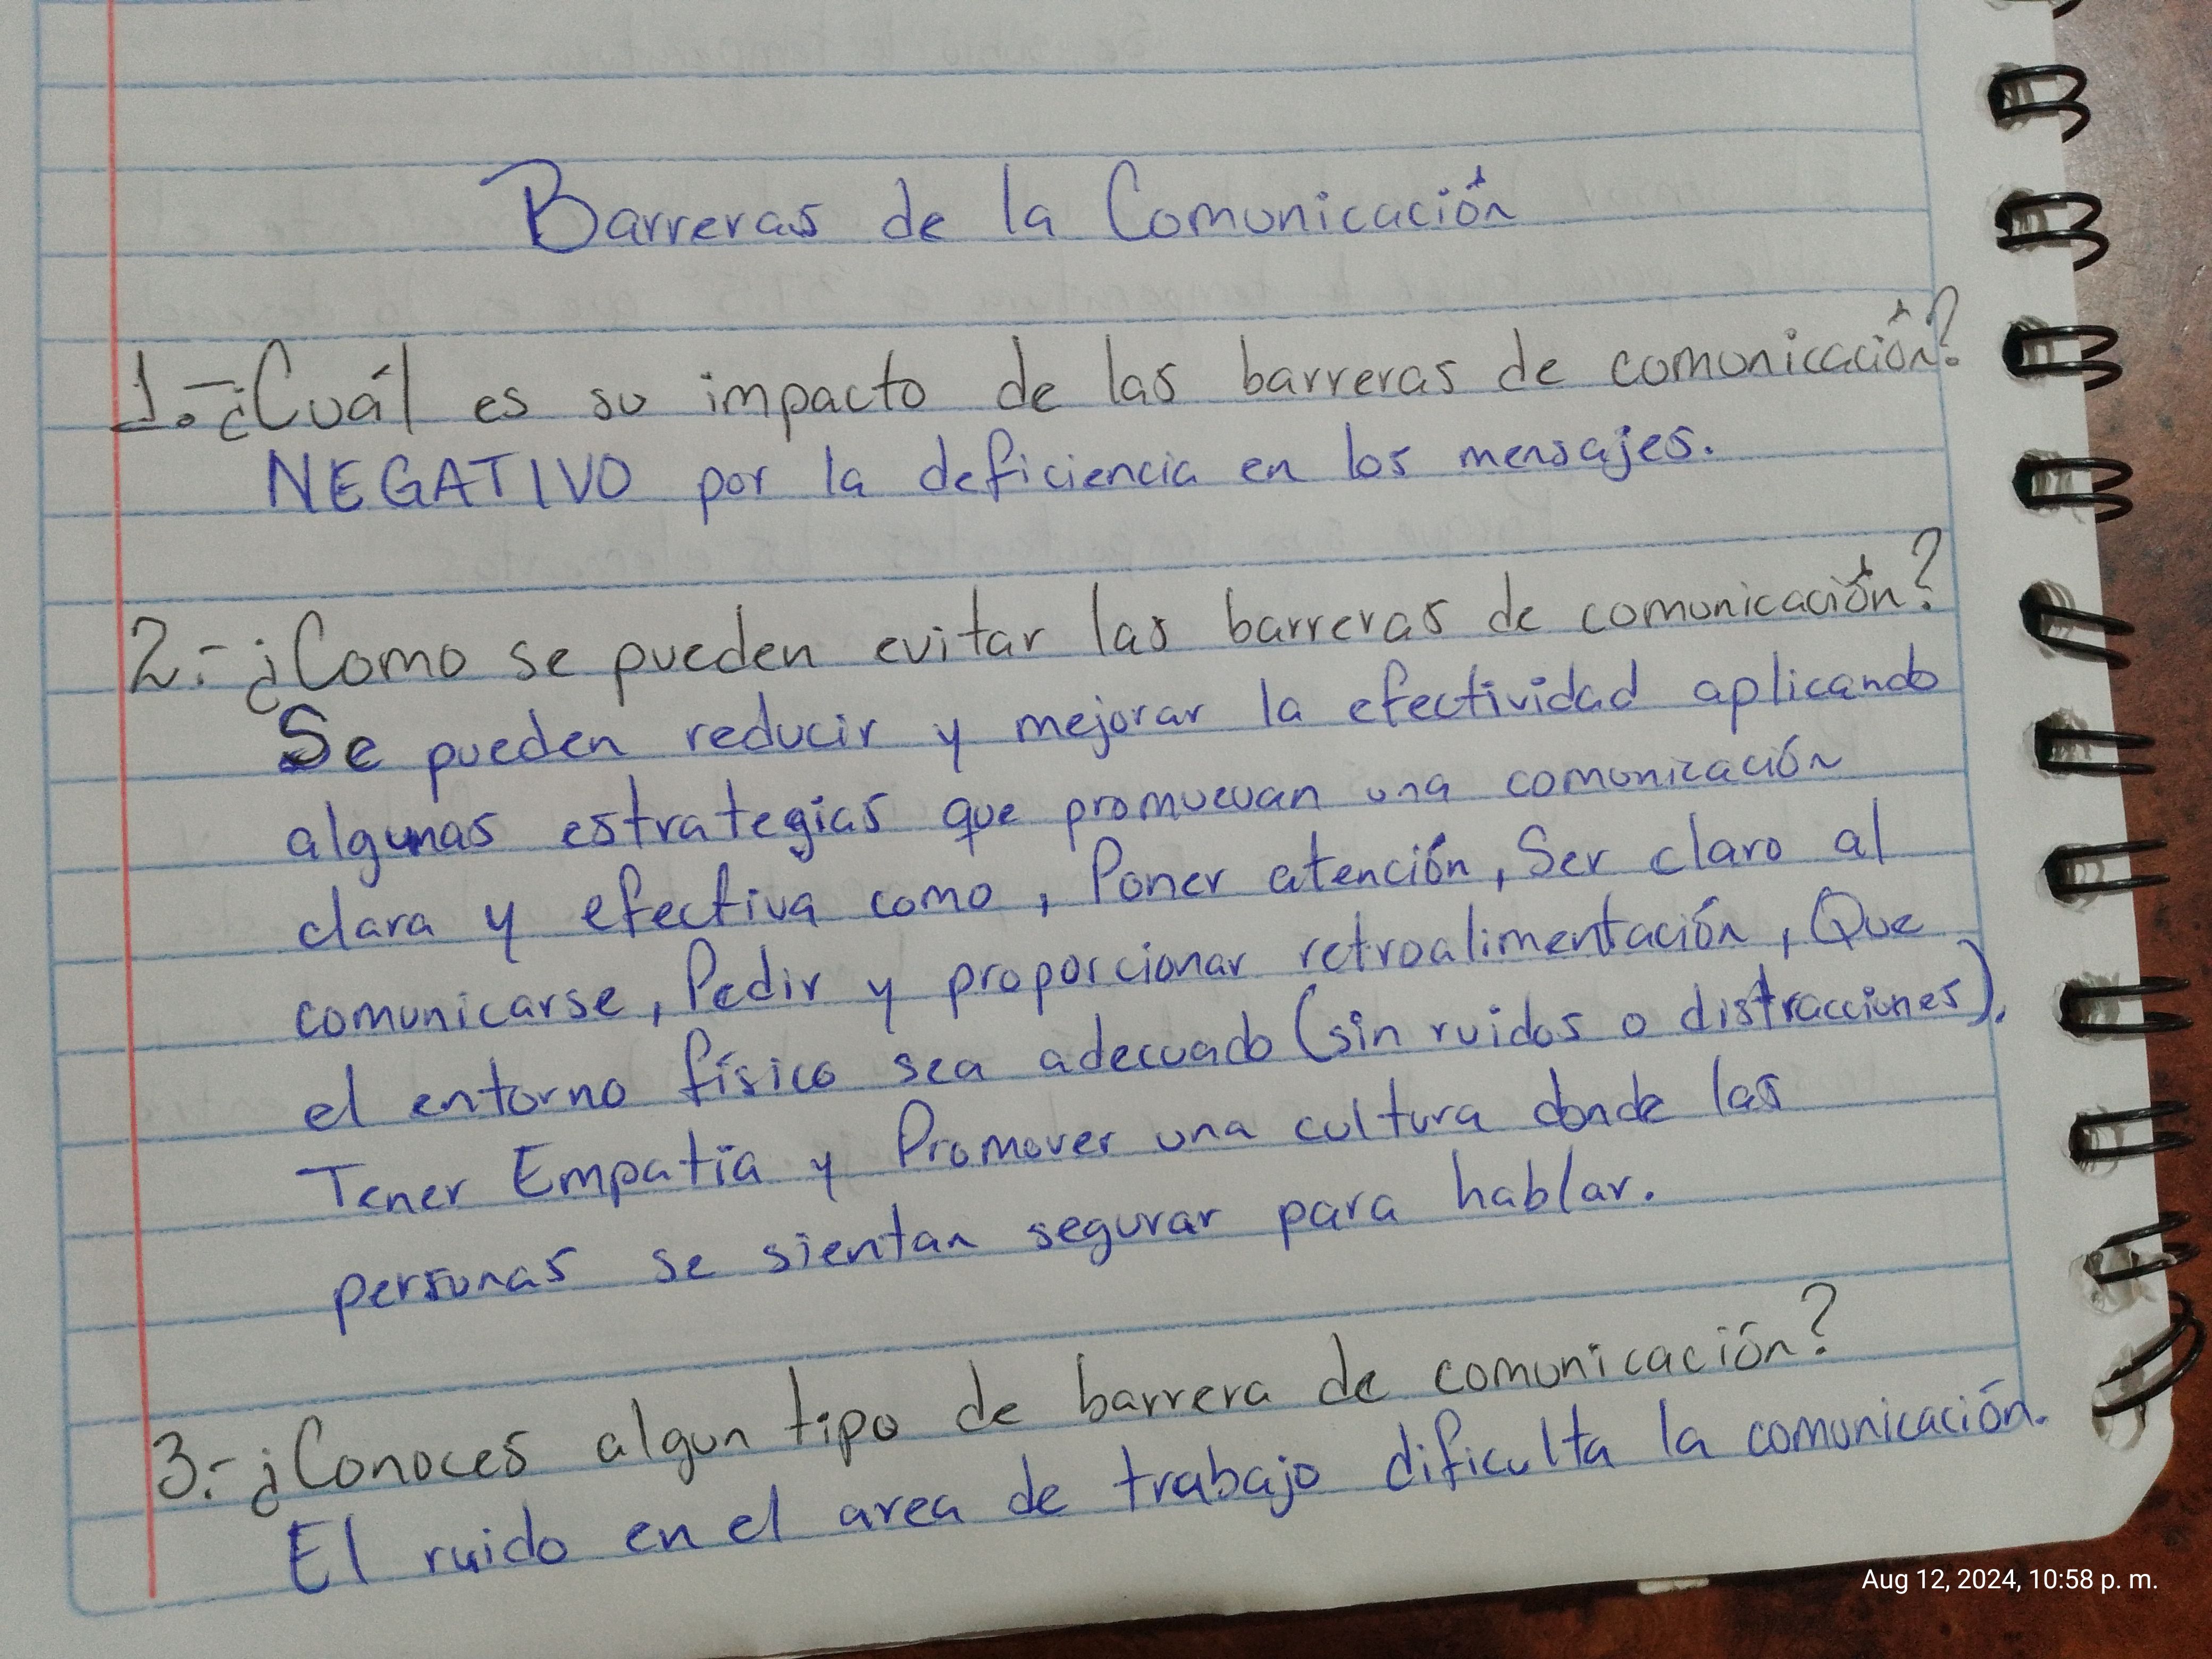 Barreras de la Comunicación
1.-¿Cuál es su impacto de las barreras de comunicación?
NEGATIVO por la deficiencia en los mensajes.
2.-¿Como se pueden evitar las barreras de comunicación?
Se pueden reducir y mejorar la efectividad aplicando
algunas estrategias que promuevan una comunicación
clara y efectiva como, Poner atención, Ser claro al
comunicarse, Pedir y proporcionar retroalimentación, Que
el entorno físico sea adecuado (sin ruidos o distracciones),
Tener Empatía y Promover una cultura donde las
personas se sientan segurar para hablar.
3.-¿Conoces algun tipo de barrera de comunicación?
El ruido en el area de trabajo dificulta la comunicación.
Aug 12, 2024, 10:58 p. m.